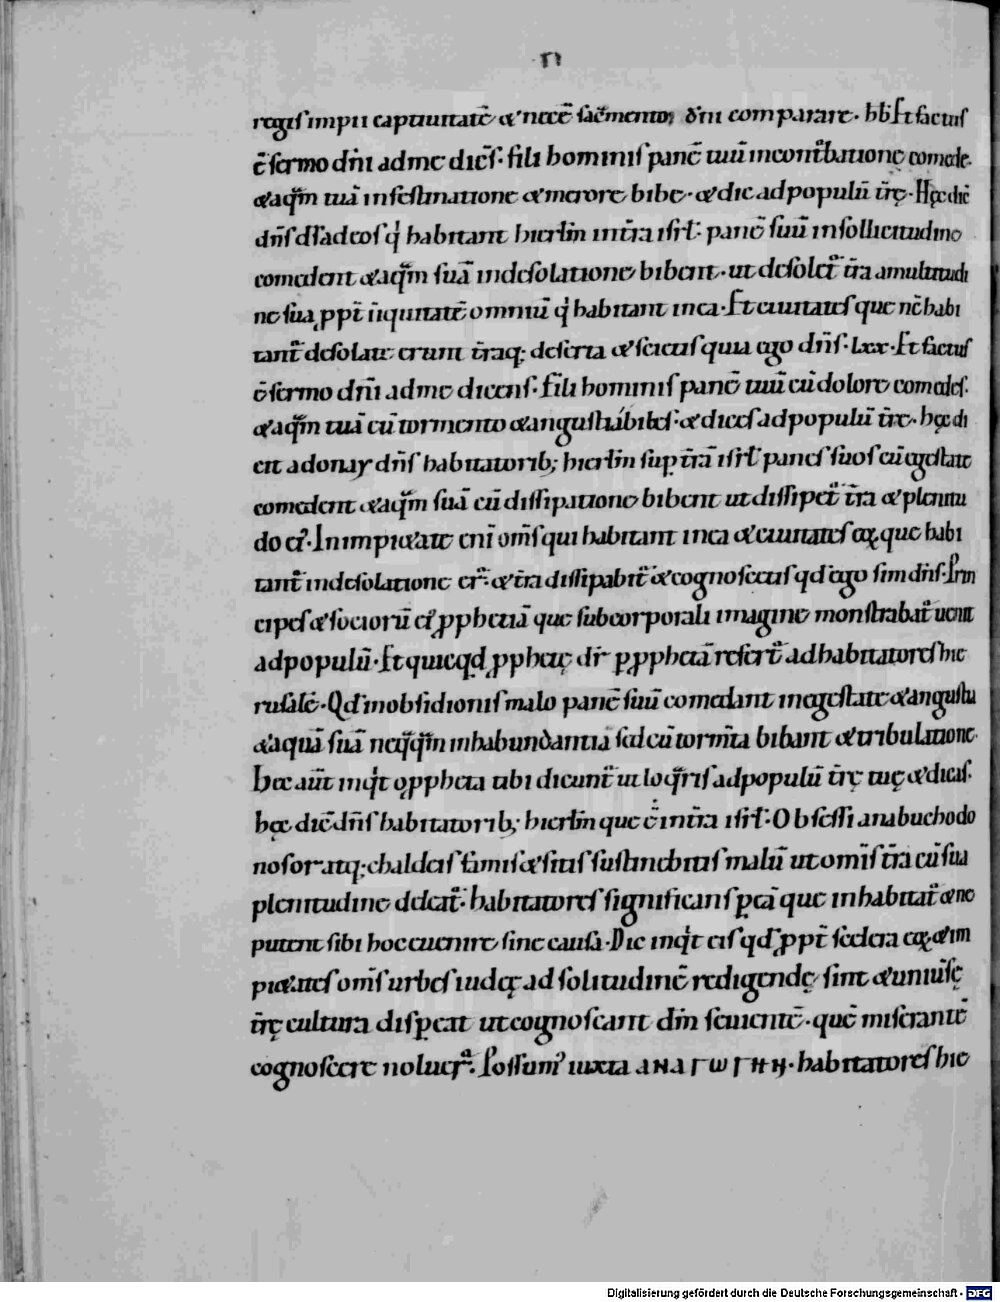 VI
regis impii captiuitatē & necē sacm̄entorū dn̄i comparare. hbi Et factus
ē sermo dn̄i ad me dicēs. fili hominis panē tuū in conturbatione comede.
& aquā tuā in festinatione & merore bibe. & dic ad populū tr̄ę. Hęc dic̄
dn̄s dš ad eos qͥ habitant hierlm̄ in tr̄a isrl̄. panē suū in sollicitudine
comedent & aquā suā in desolatione bibent. ut desolet̄ tr̄a a multitudi
ne sua ꝓpt̄ iniquitatē omniū qͥ habitant in ea. Et ciuitates que nc̄ habi
tant̄ desolatę erunt tr̄aq; deserta & scietis quia ego dn̄s. Lxx. Et factus
ē sermo dn̄i ad me dicens. fili hominis panē tuū cū dolore comedes.
& aquā tuā cū tormento & angustia bibes. & dices ad populū tr̄e. hęc di
cit adonay dn̄s habitatorib; hierlm̄ sup tr̄ā isrl̄. panes suos cū egestate
comedent & aquā suā cū dissipatione bibent ut dissipet̄ tr̄a & plenitu
do eiꝰ. In impietate eni om̄s qui habitant in ea & ciuitates eorꝫ que habi
tant̄ in desolatione er̄. & tr̄a dissipabit̄ & cognoscetis qd ego sim dn̄s. Prin
cipes & sociorū eiꝰ ꝓphetiā que sub corporali imagine monstrabat̄ uenit
ad populū. Et quicqd ꝓphetę dr̄ ꝑ ꝓphetā refert̄ ad habitatores hie
rusalē. Qd in obsidionis malo panē suū comedant in egestate & angustia
& aquā suā nequāqm̄ in habundantia sed cū torm̄ta bibant & tribulatione.
Hęc aut̄ inqͥt o ꝓpheta ubi dicunt̄ ut loquaris ad populū tr̄ę tuę & dicas.
hęc dic̄ dn̄s habitatorib; hierlm̄ que ē in tr̄a isrl̄. Obsessi a nabuchodo
nosor atq; chaldeis famis & sitis sustinebitis malū ut om̄is tr̄a cū sua
plenitudine deleat̄. habitatores significans ꝑ eā que inhabitat̄ & ne
putent sibi hoc euenire sine causa. Dic inqͥt eis qd ꝓpt̄ scelera eorꝫ & im
pietates om̄s urbes iudęę ad solitudinē redigendę sint & uniuersę
tr̄ę cultura dispereat ut cognoscant dn̄m seuientē. quē miserantē
cognoscere noluerꝫ. Possumꝰ iuxta ΑΝΑΓΩΓΗΝ. habitatores hie
Digitalisierung gefördert durch die Deutsche Forschungsgemeinschaft - DFG